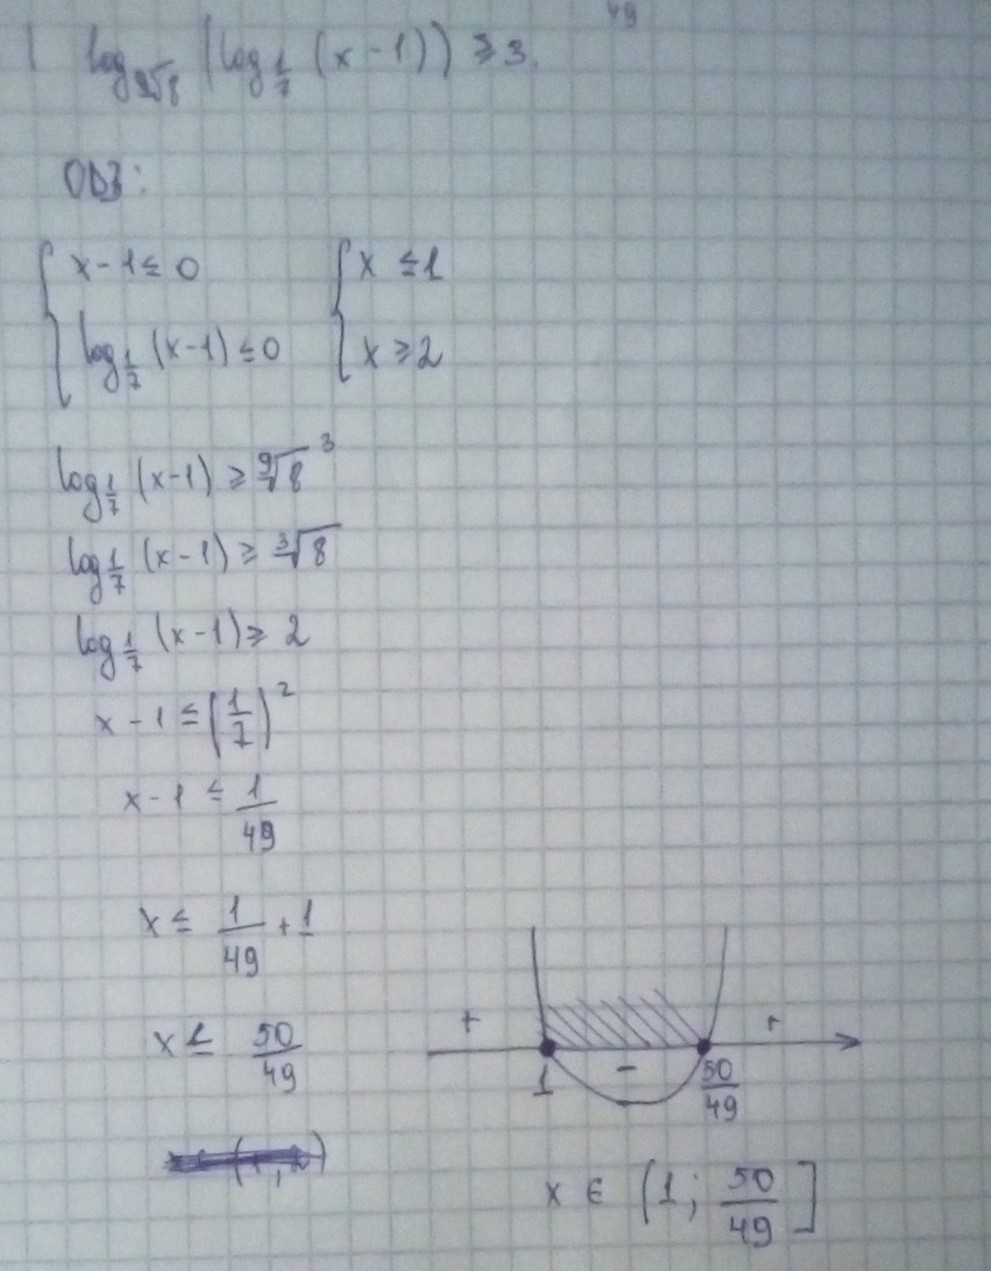 49
log_{\sqrt[9]{8}} (log_{1/7} (x - 1)) ≥ 3.
ОДЗ:
{ x - 1 ≤ 0 { x ≤ 1
log_{1/7} (x-1) ≤ 0 x ≥ 2
log_{1/7} (x-1) ≥ \sqrt[9]{8}^3
log_{1/7} (x - 1) ≥ \sqrt[3]{8}
log_{1/7} (x-1) ≥ 2
x - 1 ≤ (1/7)^2
x - 1 ≤ 1/49
x ≤ 1/49 + 1
+ +
x ≤ 50/49
1 - 50/49
x ∈ (1; 50/49]